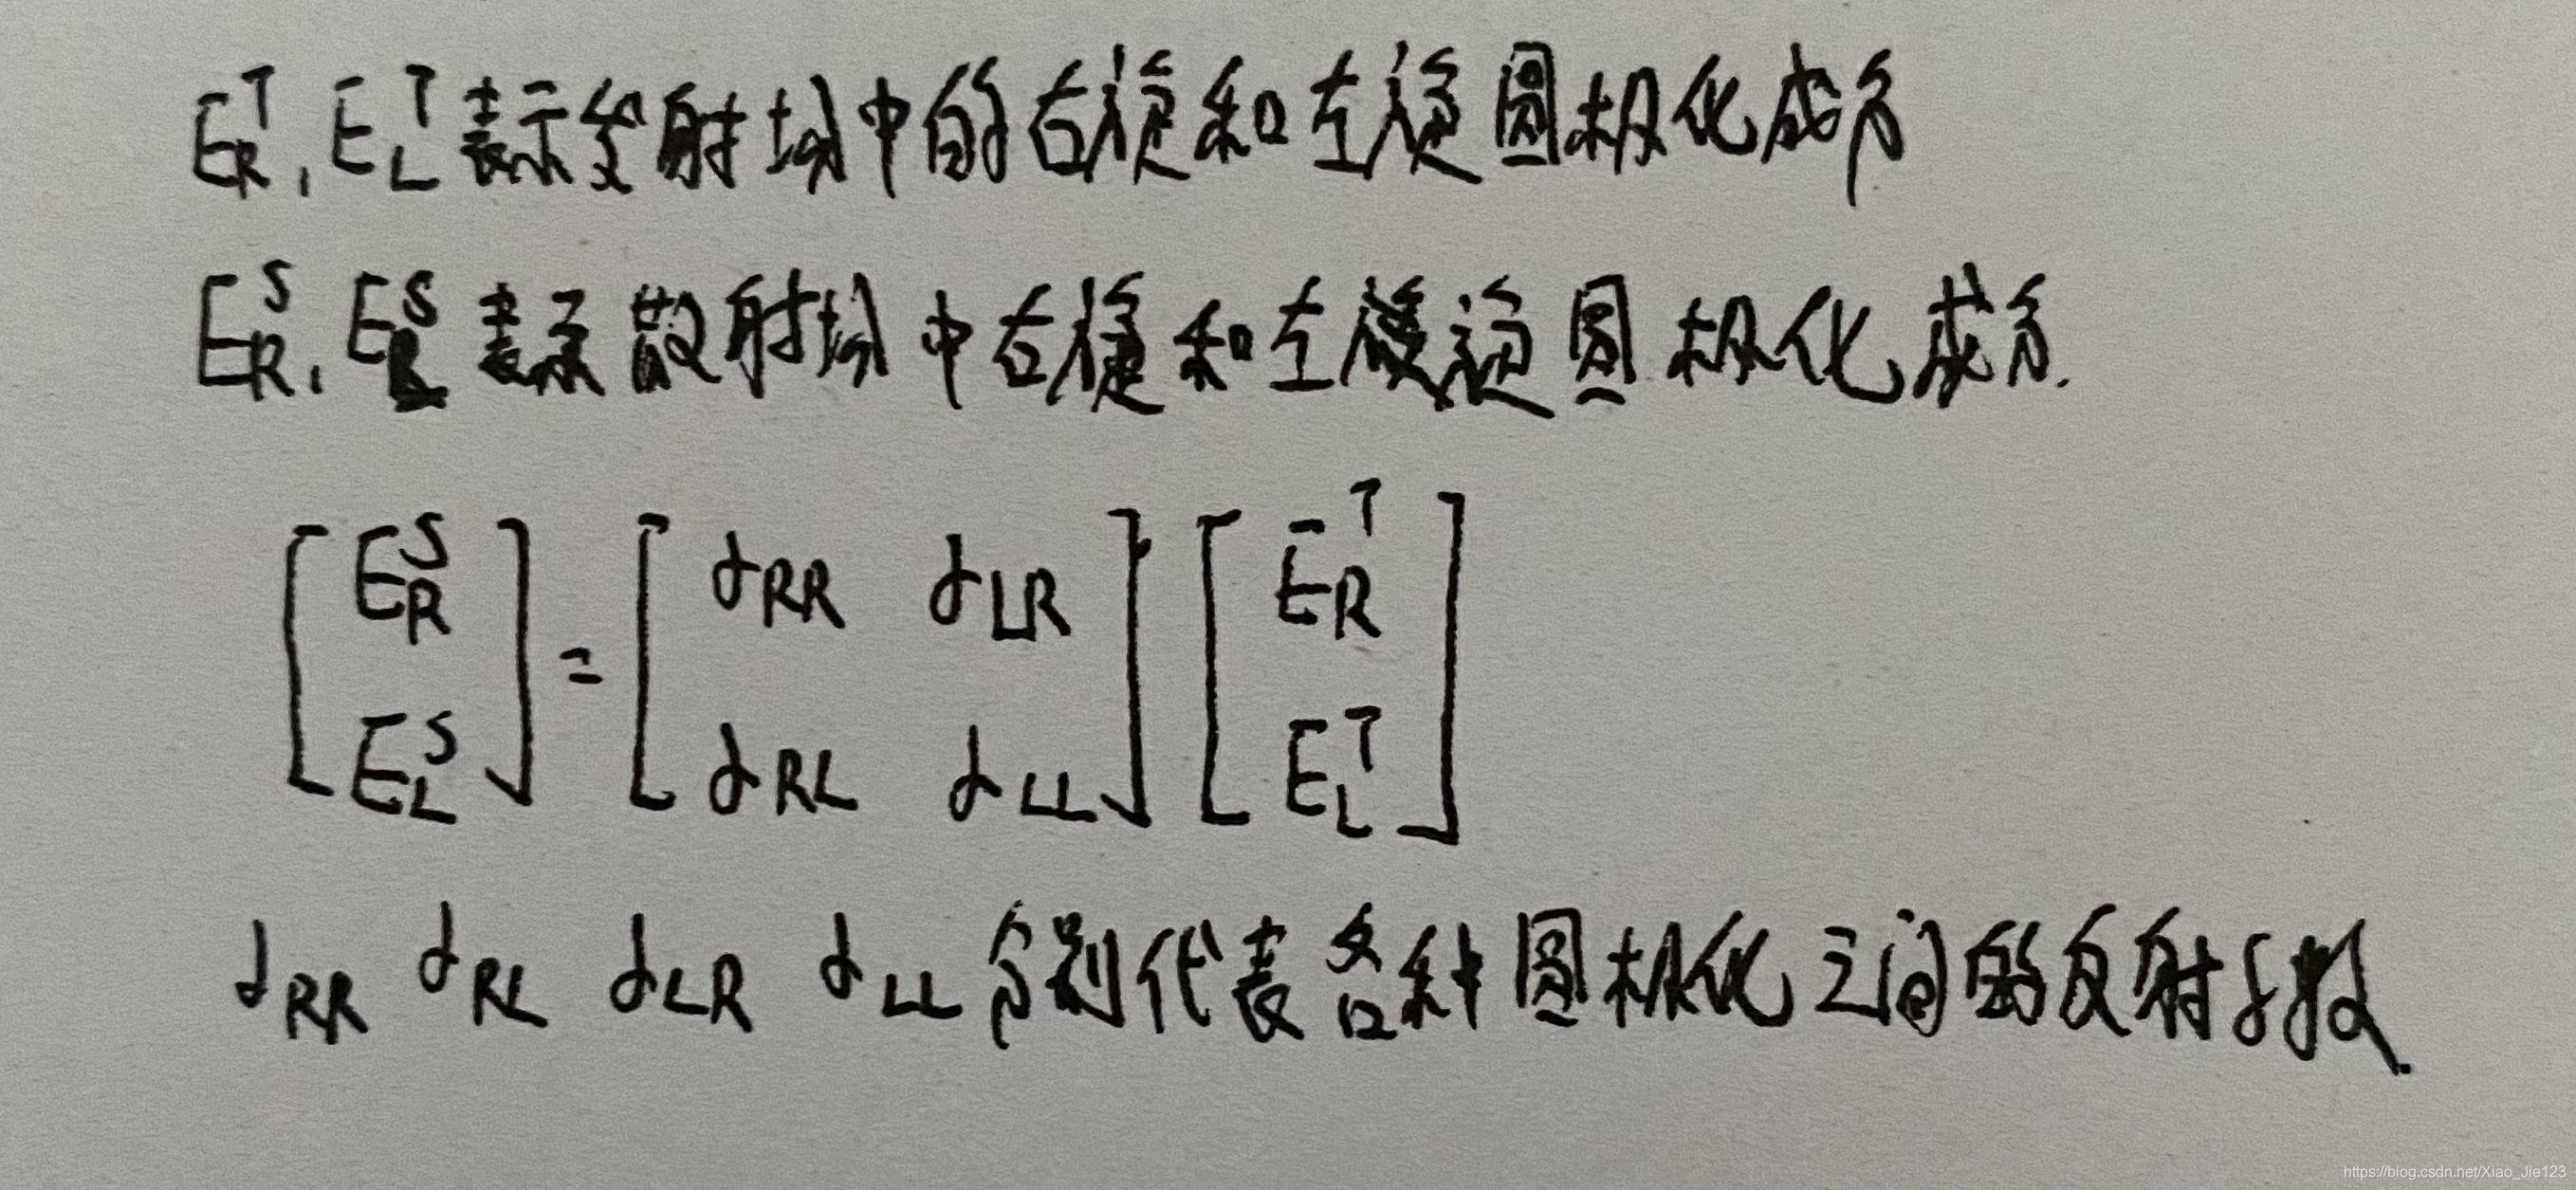 E_R^T, E_L^T 表示发射场中的右旋和左旋圆极化成分
E_R^S, E_L^S 表示散射场中右旋和左旋圆极化成分.
[E_R^S E_L^S] = [α_RR α_LR α_RL α_LL] [E_R^T E_L^T]
α_RR α_RL α_LR α_LL 分别代表各种圆极化之间的反射系数.
https://blog.csdn.net/Xiao_Jie123